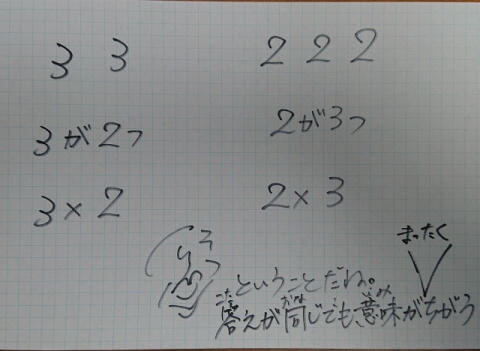 3 3
2 2 2
3が2つ
2が3つ
3×2
2×3
ということだね。
まったく
こた おな いみ
答えが同じでも意味がちがう